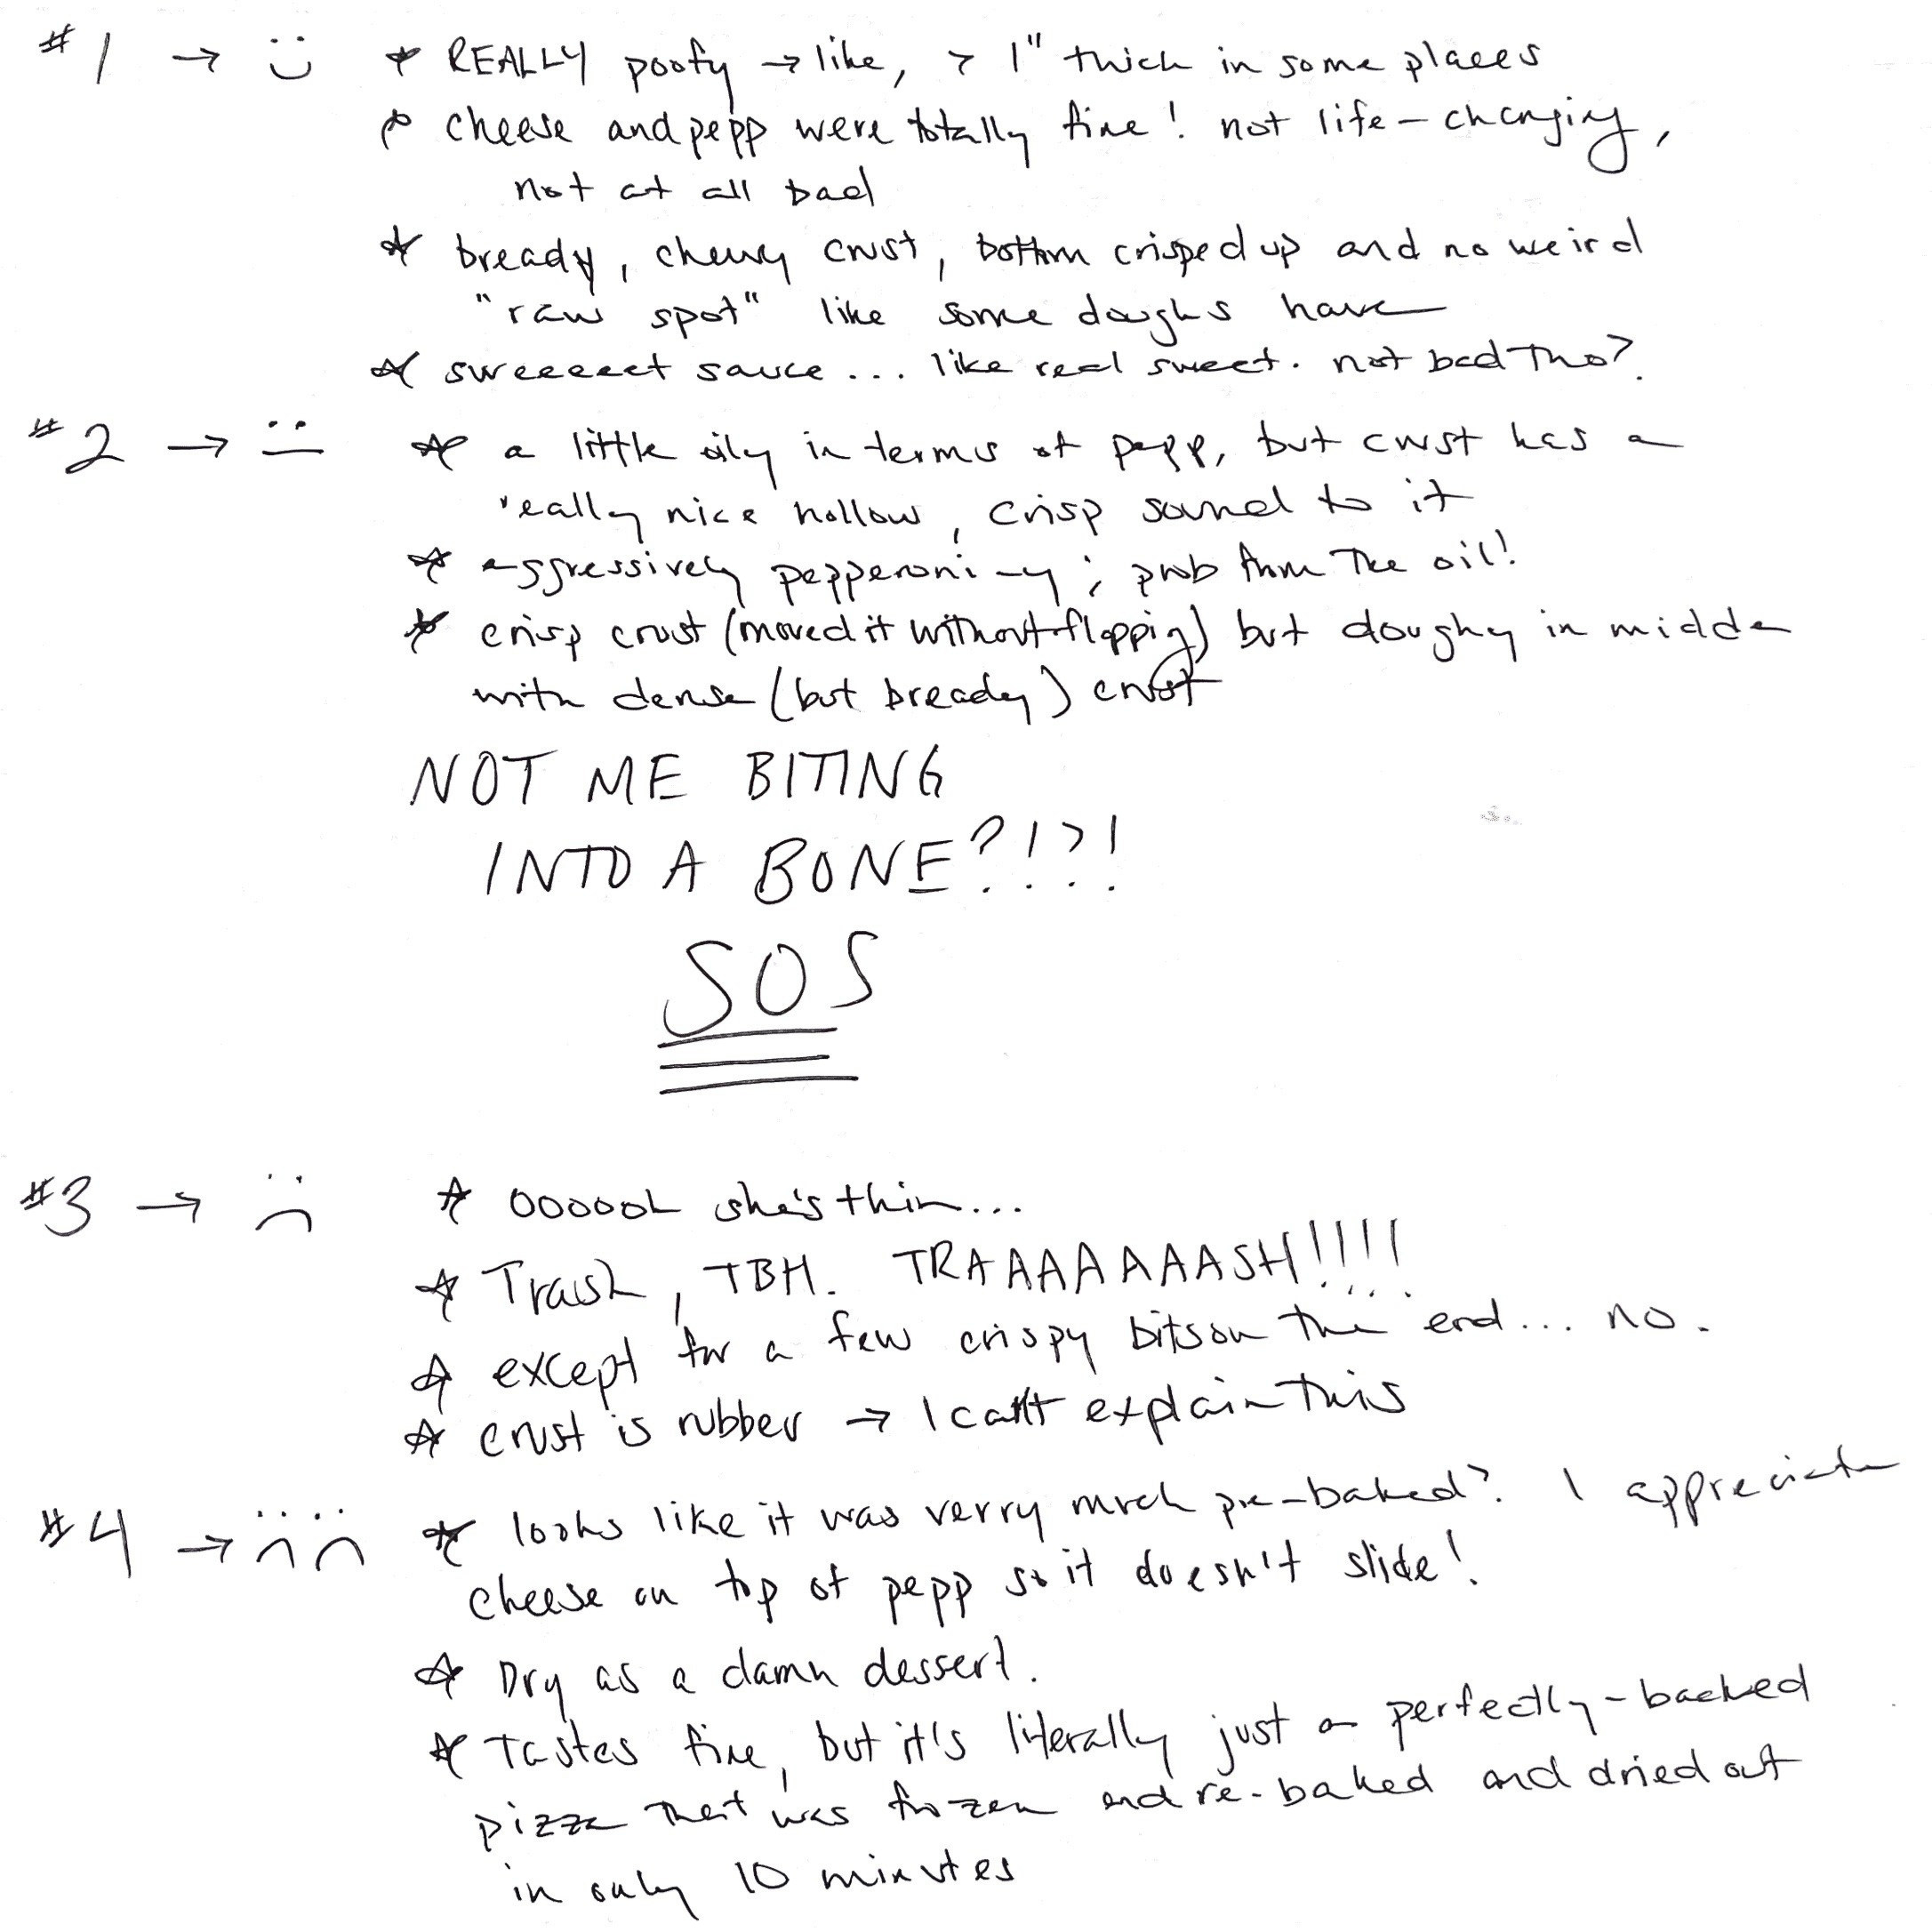 #1 → :) * REALLY poofy → like, > 1" thick in some places
* cheese and pepp were totally fine! not life-changing,
not at all bad
* bready, chewy crust, bottom crisped up and no weird
"raw spot" like some doughs have
* sweeeeet sauce... like real sweet. not bad tho?
#2 → :| * a little oily in terms of pepp, but crust has a
really nice hollow, crisp sound to it
* aggressively pepperoni-y; prob from the oil!
* crisp crust (moved it without flopping) but doughy in middle
with dense (but bready) crust
NOT ME BITING
INTO A BONE?!?!
SOS
#3 → :( * OOOOOh she's thin...
* Trash, TBH. TRAAAAAAASH!!!!
* except for a few crispy bits on the end... no.
* crust is rubber → I can't explain this
#4 → :( :( * looks like it was verry much pre-baked? I appreciate
cheese on top of pepp so it doesn't slide!
* Dry as a damn dessert.
* Tastes fine, but it's literally just a perfectly-backed
pizza that was frozen and re-baked and dried out
in only 10 minutes